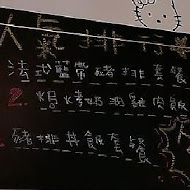 人氣排行
法式藍帶豬排套餐
2. 焗烤奶油雞肉飯
豬排丼飯套餐